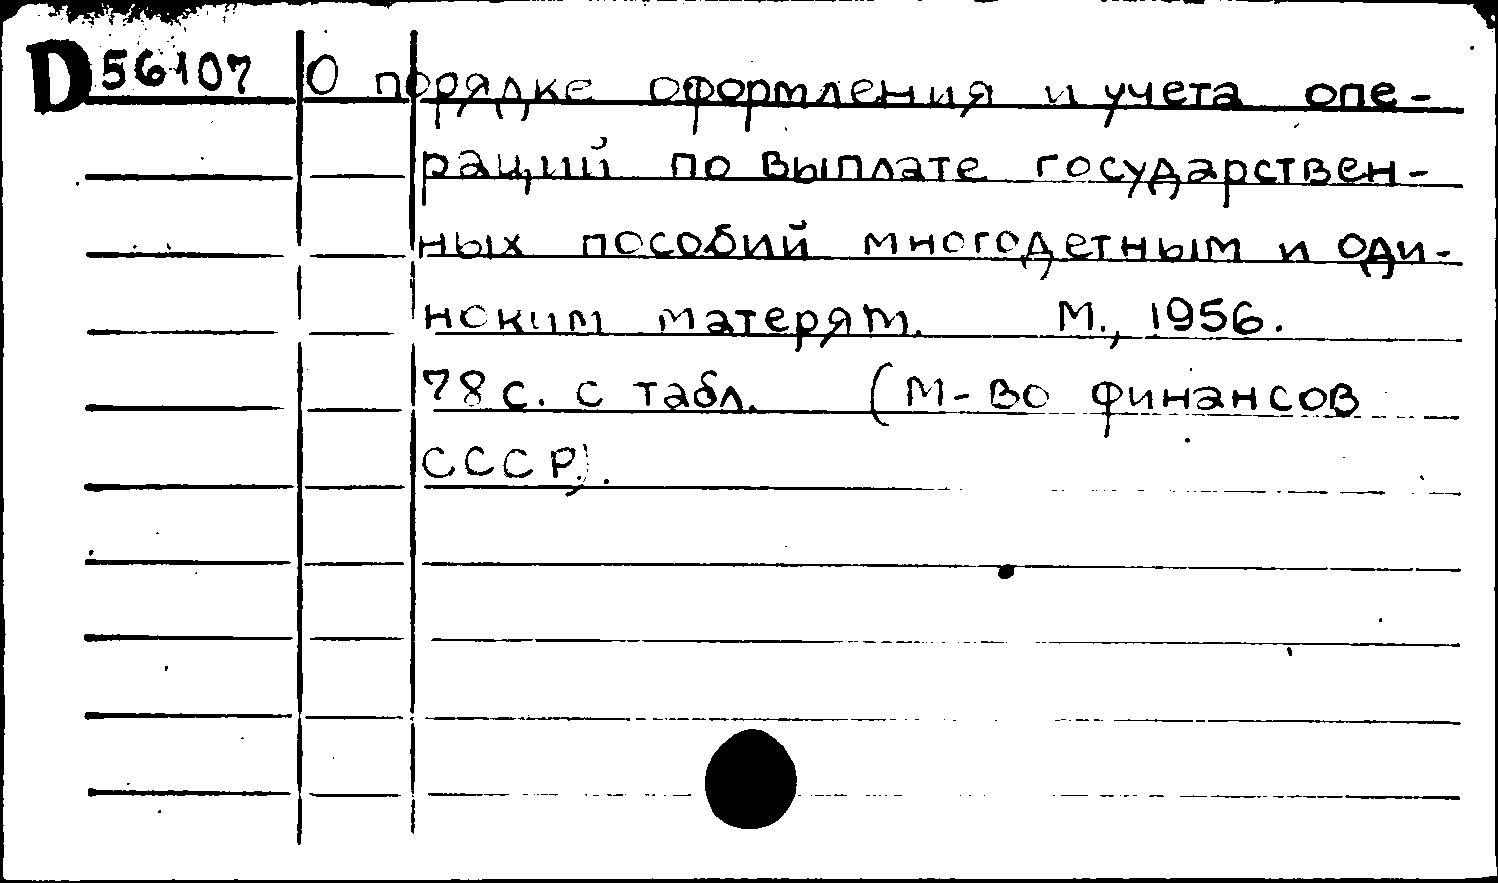 D56107 О порядке оформления и учета опе-
раций по выплате государствен-
ных пособий многодетным и оди-
ноким матерям. М., 1956.
78 с. с табл. (М-во финансов
СССР).